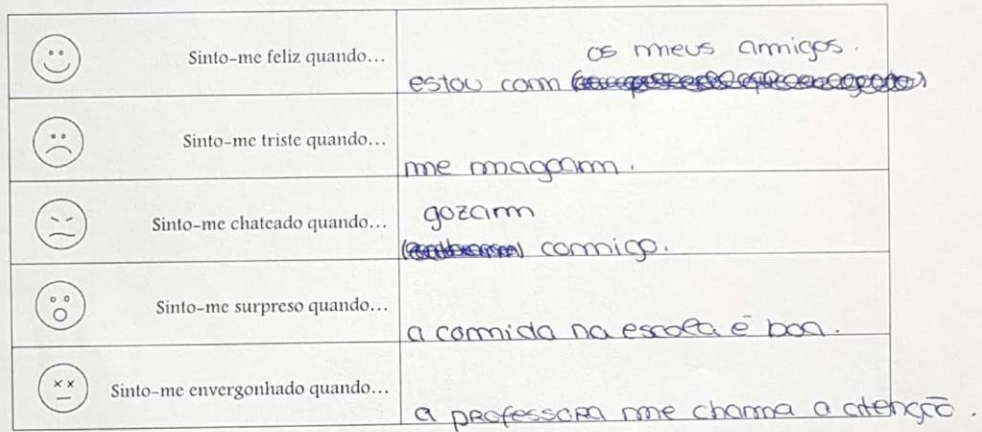 Sinto-me feliz quando...
os meus amigos.
estou com
Sinto-me triste quando...
me magoam.
Sinto-me chateado quando...
gozam
comigo.
Sinto-me surpreso quando...
a comida na escola é boa.
Sinto-me envergonhado quando...
a professora me chama a atenção.